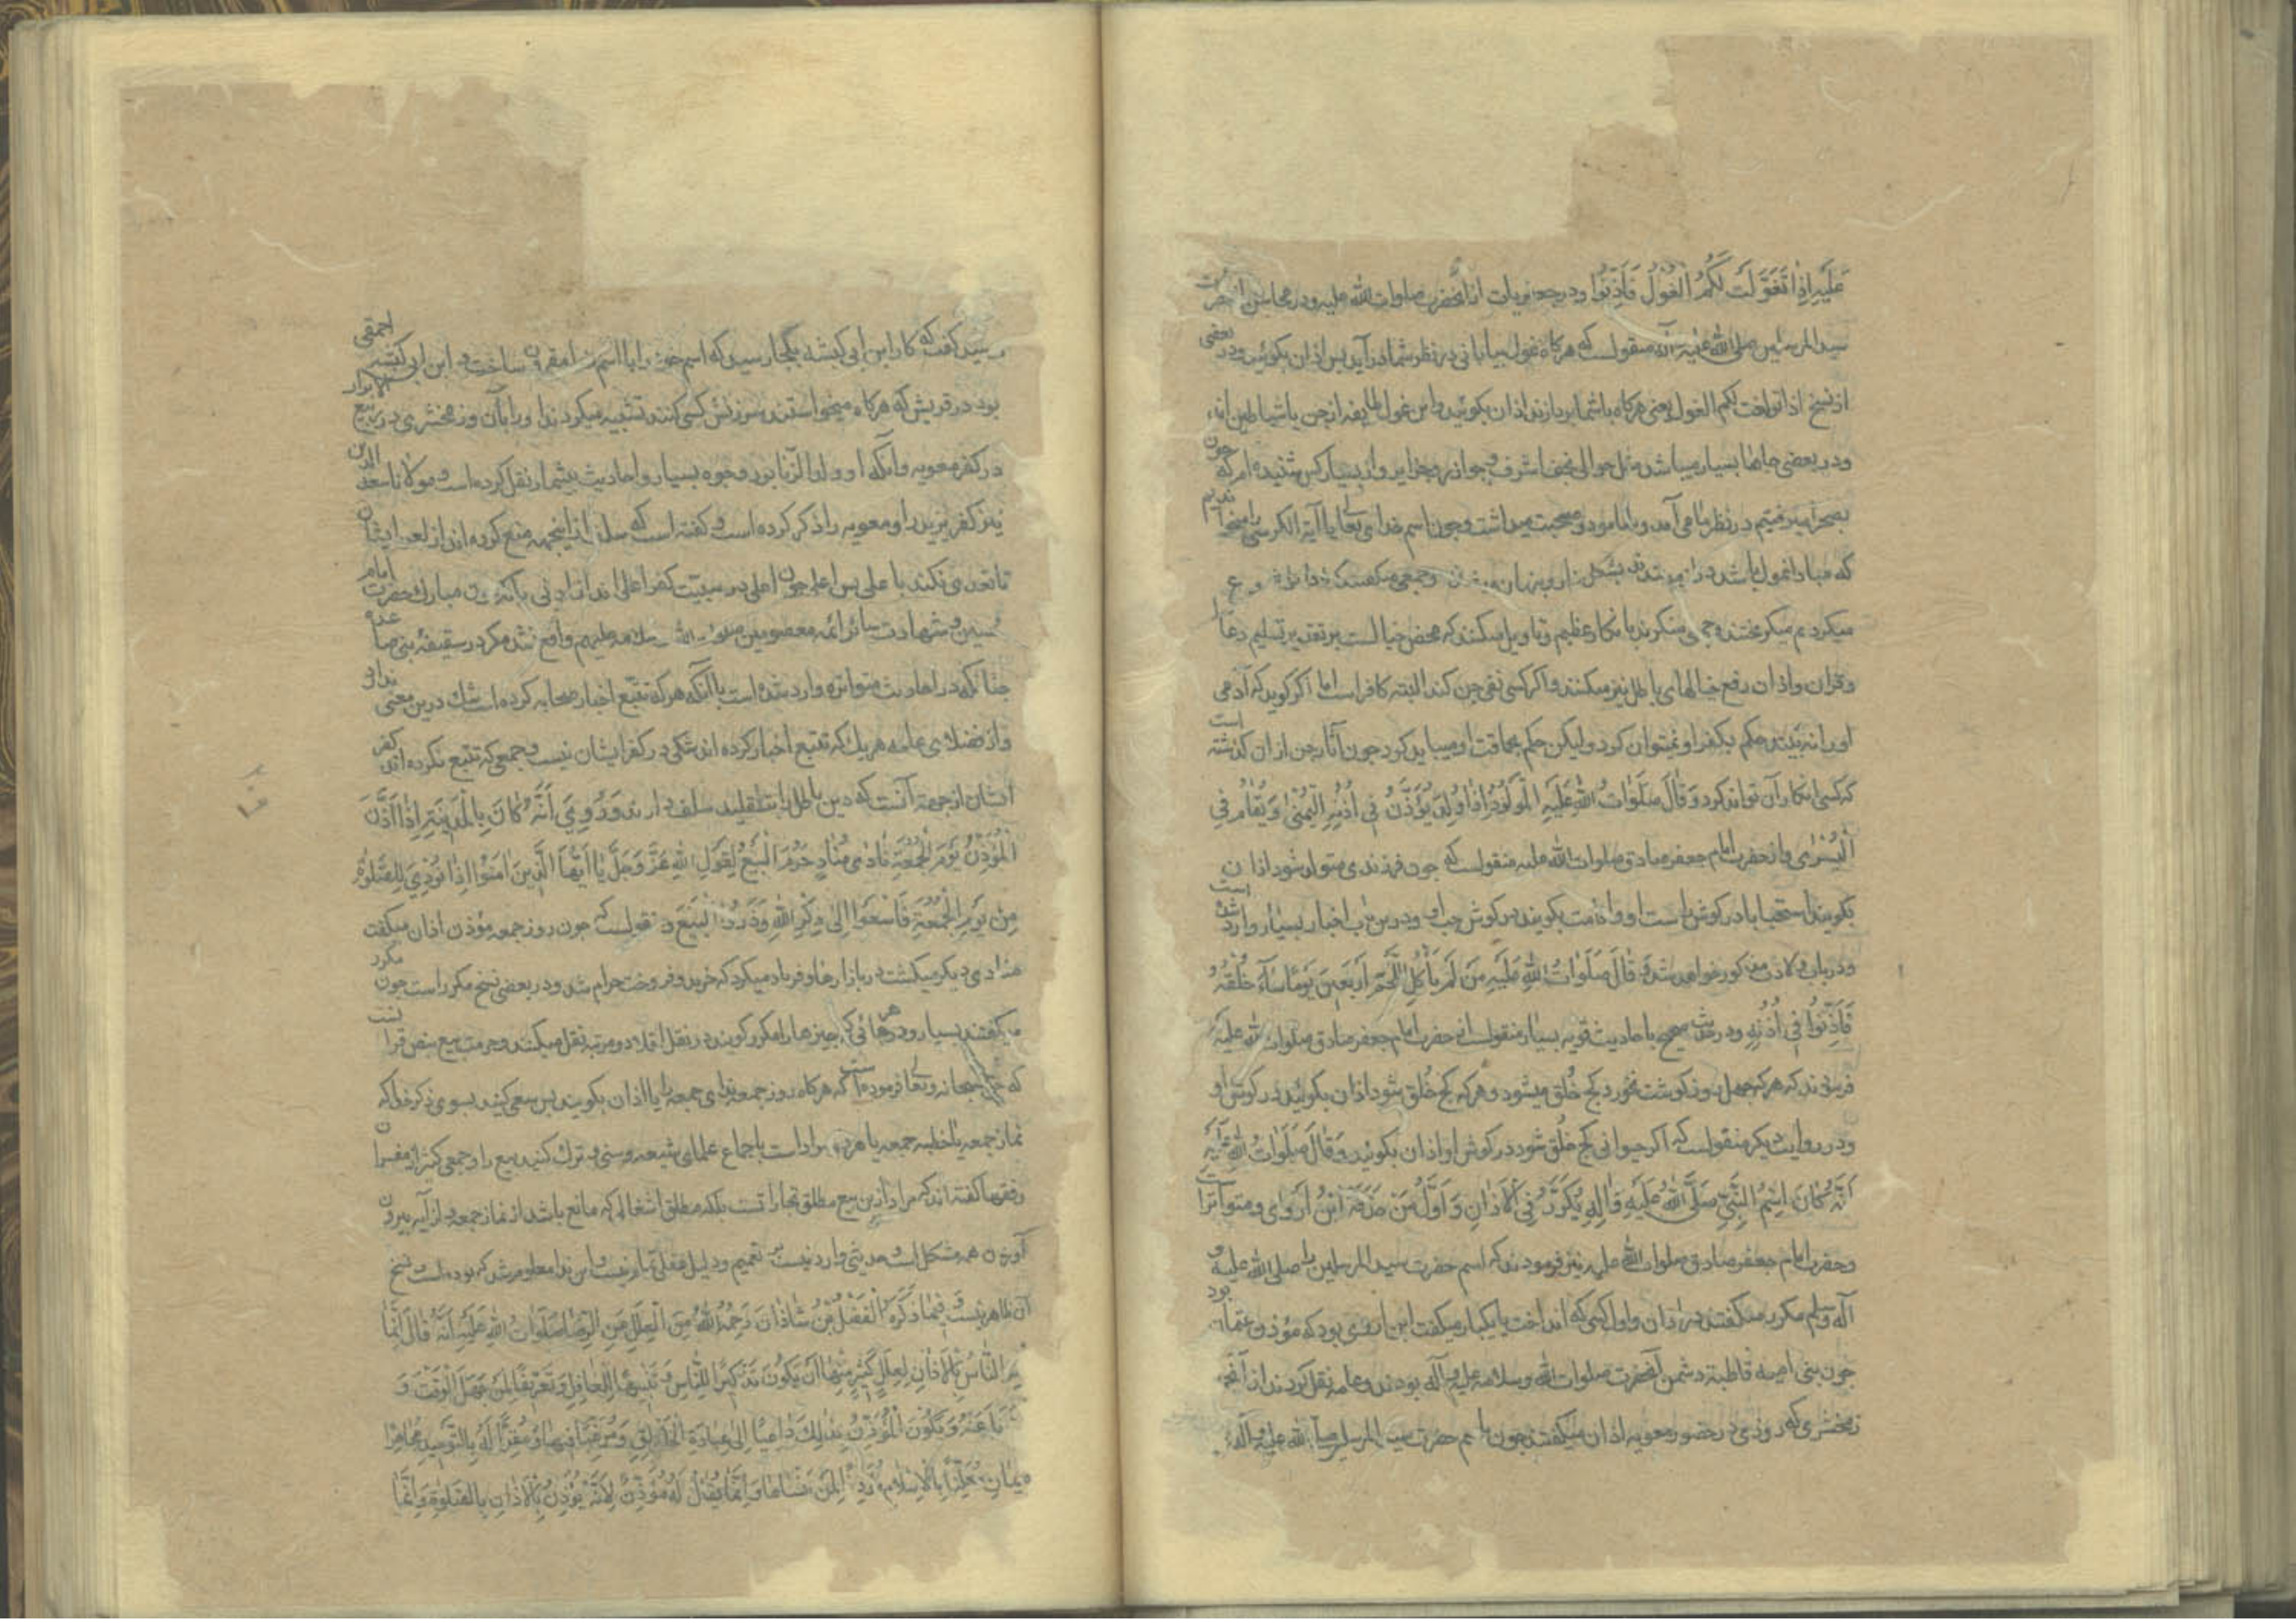 عَلَيْهِ اِذَا تَغَوَّلَتْ لَكُمُ الْغُولُ فَاَذِّنُوا ودر جعفریات از آنحضرت صلوات الله علیه ودر محاسن از حضرت
سید المرسلین صلی الله علیه وآله منقولست که هرگاه غول بیابانی در نظر شما درآید پس اذان بگوئید ودر بعضی
از نسخ اذا تولعت لکم الغول یعنی هرگاه باشما بربازند اذان بگوئید واین غول طایفه از جن یا شیاطین اند
ودر بعضی جاها بسیار میباشد مثل حوالی نجف اشرف وجوازر وجزایر واز بسیار کس شنیده ام که چون
بصحرا میرفتیم در نظر ما می آمد وباما مود وصحبت میداشت وچون اسم خدای تعالی یا آیة الکرسی را میخواندیم
که مبادا غول باشد
میکردیم میگریختند وجمعی منکرند بانکار عظیم وتاویل میکنند که محض خیالست بر تقدیر تسلیم دعا
وقران واذان رفع خیالهای باطل نیز میکنند واگر کسی نفی جن کند البته کافر است اما اگر گوید که آدمی
اورا نه بیند حکم بکفر او نمیتوان کرد ولیکن حکم بحماقت او میباید کرد چون آثار جن از ان گذشته است
که کسی انکار آن تواند کرد وَقَالَ صَلَوَاتُ اللهِ عَلَيْهِ الْمَوْلُودُ اِذَا وُلِدَ يُؤَذَّنُ فِى اُذُنِهِ الْيُمْنٰى وَيُقَامُ فِي
الْيُسْرٰى واز حضرت امام جعفر صادق صلوات الله علیه منقولست که چون فرزندی متولد شود اذان
بگویند استحبابا در گوش راست او واقامت بگویند در گوش چپ او ودرین باب اخبار بسیار وارد شده است
ودر باب ولادت مذکور خواهد شد وَقَالَ صَلَوَاتُ اللهِ عَلَيْهِ مَنْ لَمْ يَأْكُلِ اللَّحْمَ اَرْبَعِينَ يَوْمًا سَآءَ خُلْقُهُ وَ
فَاَذِّنُوا فِى اُذُنِهِ ودر حدیث صحیح با احادیث قویه بسیار منقولست از حضرت امام جعفر صادق صلوات الله علیه که
فرمودند که هر که چهل روز گوشت نخورد کج خُلق میشود وهر که کج خُلق شود اذان بگوئید در گوش او
ودر روایت دیگر منقولست که اگر حیوانی کج خلق شود در گوش او اذان بگوئید وَقَالَ صَلَوَاتُ اللهِ عَلَيْهِ
اَنَّهُ كَانَ اِسْمُ النَّبِيِّ صَلَّى اللهُ عَلَيْهِ وَاٰلِهِ يُكَرَّرُ فِى الْاَذَانِ وَاَوَّلُ مَنْ حَذَفَهُ ابْنُ اَرْوٰى ومتواترا
وحضرت امام جعفر صادق صلوات الله علیه نیز فرمودند که اسم حضرت سید المرسلین را صلی الله علیه و
آله وسلم مکرر میگفتند در اذان واول کسی که انداخت یا یکبار میگفت ابن اروی بود که مؤذن عثمان بود
چون بنی امیه قاطبة دشمن آنحضرت صلوات الله وسلامه علیه وآله بودند وعامه نقل کردند از آنجمله
زمخشری که روزی در حضور معویه اذان میگفتند چون باسم حضرت سید المرسلین صلی الله علیه وآله
رسید گفت که کار ابن ابی کبشه بکجا رسید که اسم خود را با اسم خدا مقرون ساخت وابن ابی کبشه احمقی
بود در قریش که هرگاه میخواستند سرزنش کسی کنند تشبیه میکردند اورا بآن وزمخشری در ربیع الابرار
در کفر معویه وآنکه او ولد الزنا بود وجوه بسیار واحادیث بیشمار نقل کرده است ومولانا سعد الدین
نیز کفر یزید را ومعویه را ذکر کرده است وگفته است که سلف از اینجهة منع کرده اند از لعن ایشان
تا تعدی نکند باعلی پس اعلی چون اعلی در سببیت کفر اعلی اند از ادنی بآنکه خون مبارک حضرت امام
حسین وشهادت سائر ائمه معصومین صلوات الله وسلامه علیهم واقع نشد مگر در سقیفه بنی ساعده
چنانکه در احادیث متواتره وارد شده است باآنکه هرکه تتبع اخبار صحابه کرده است شک درین معنی ندارد
واز فضلای عامه هریک که تتبع اخبار کرده اند شکی در کفر ایشان نیست وجمعی که تتبع نکرده اند کفر
ایشان از جهة آنست که دین باطل را بتقلید سلف دارند وَرُوِيَ اَنَّهُ كَانَ بِالْمَدِينَةِ اِذَا اَذَّنَ
الْمُؤَذِّنُ يَوْمَ الْجُمُعَةِ نَادٰى مُنَادٍ حَرُمَ الْبَيْعُ لِقَوْلِ اللهِ عَزَّ وَجَلَّ يَا اَيُّهَا الَّذِينَ اٰمَنُوا اِذَا نُودِيَ لِلصَّلٰوةِ
مِنْ يَوْمِ الْجُمُعَةِ فَاسْعَوْا اِلٰى ذِكْرِ اللهِ وَذَرُوا الْبَيْعَ ومنقولست که چون روز جمعه مؤذن اذان میگفت
منادی دیگر میگشت در بازارها وفریاد میکرد که خرید وفروخت حرام شد ودر بعضی نسخ مکرر است چون مکرر
میگفتند بسیار ودر هرجائی که چیزها را مکرر گویند در نقل اقلا دومرتبه نقل میکنند وحرمت بیع بنص قرانست
که حق سبحانه وتعالی فرموده است که هرگاه روز جمعه ندای جمعه را یا اذان بگویند پس سعی کنید بسوی ذکر خدا که
نماز جمعه یا خطبه جمعه یا هردو مراد است باجماع علمای شیعه وسنی وترک کنید بیع را وجمعی کثیر از مفسران
وفقها گفته اند که مراد ازین بیع مطلق تجاراتست بلکه مطلق اشغالی که مانع باشد از نماز جمعه واز آیه بیرون
آوردن همه مشکل است وحدیثی وارد نیست بر تعمیم ودلیل عقلی تمام نیست واین ندا معلوم شد که بوده است ونسخ
آن ظاهر نیست وَفِيمَا ذَكَرَهُ الْفَضْلُ بْنُ شَاذَانَ رَحِمَهُ اللهُ مِنَ الْعِلَلِ عَنِ الرِّضَا صَلَوَاتُ اللهِ عَلَيْهِ اَنَّهُ قَالَ اِنَّمَا
اُمِرَ النَّاسُ بِالْاَذَانِ لِعِلَلٍ كَثِيرَةٍ مِنْهَا اَنْ يَكُونَ تَذْكِيرًا لِلنَّاسِ وَتَنْبِيهًا لِلْغَافِلِ وَتَعْرِيفًا لِمَنْ جَهِلَ الْوَقْتَ وَ
عَنْهُ وَيَكُونَ الْمُؤَذِّنُ بِذٰلِكَ دَاعِيًا اِلٰى عِبَادَةِ الْخَالِقِ وَمُرَغِّبًا فِيهَا وَمُقِرًّا لَهُ بِالتَّوْحِيدِ مُجَاهِرًا
بِالْاِيمَانِ مُعْلِنًا بِالْاِسْلَامِ لِمَنْ وَاِنَّمَا يُقَالُ لَهُ مُؤَذِّنٌ لِاَنَّهُ يُؤَذِّنُ بِالْاَذَانِ بِالصَّلٰوةِ وَاِنَّمَا